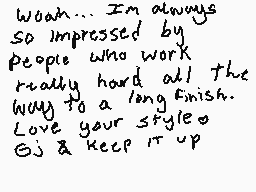 Woah... I'm always
so impressed by
people who work
really hard all the
way to a long finish.
Love your style
& keep it up